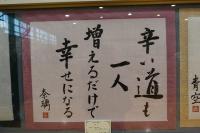 辛い道も
一人
増えるだけで
幸せになる
泰璃
青空